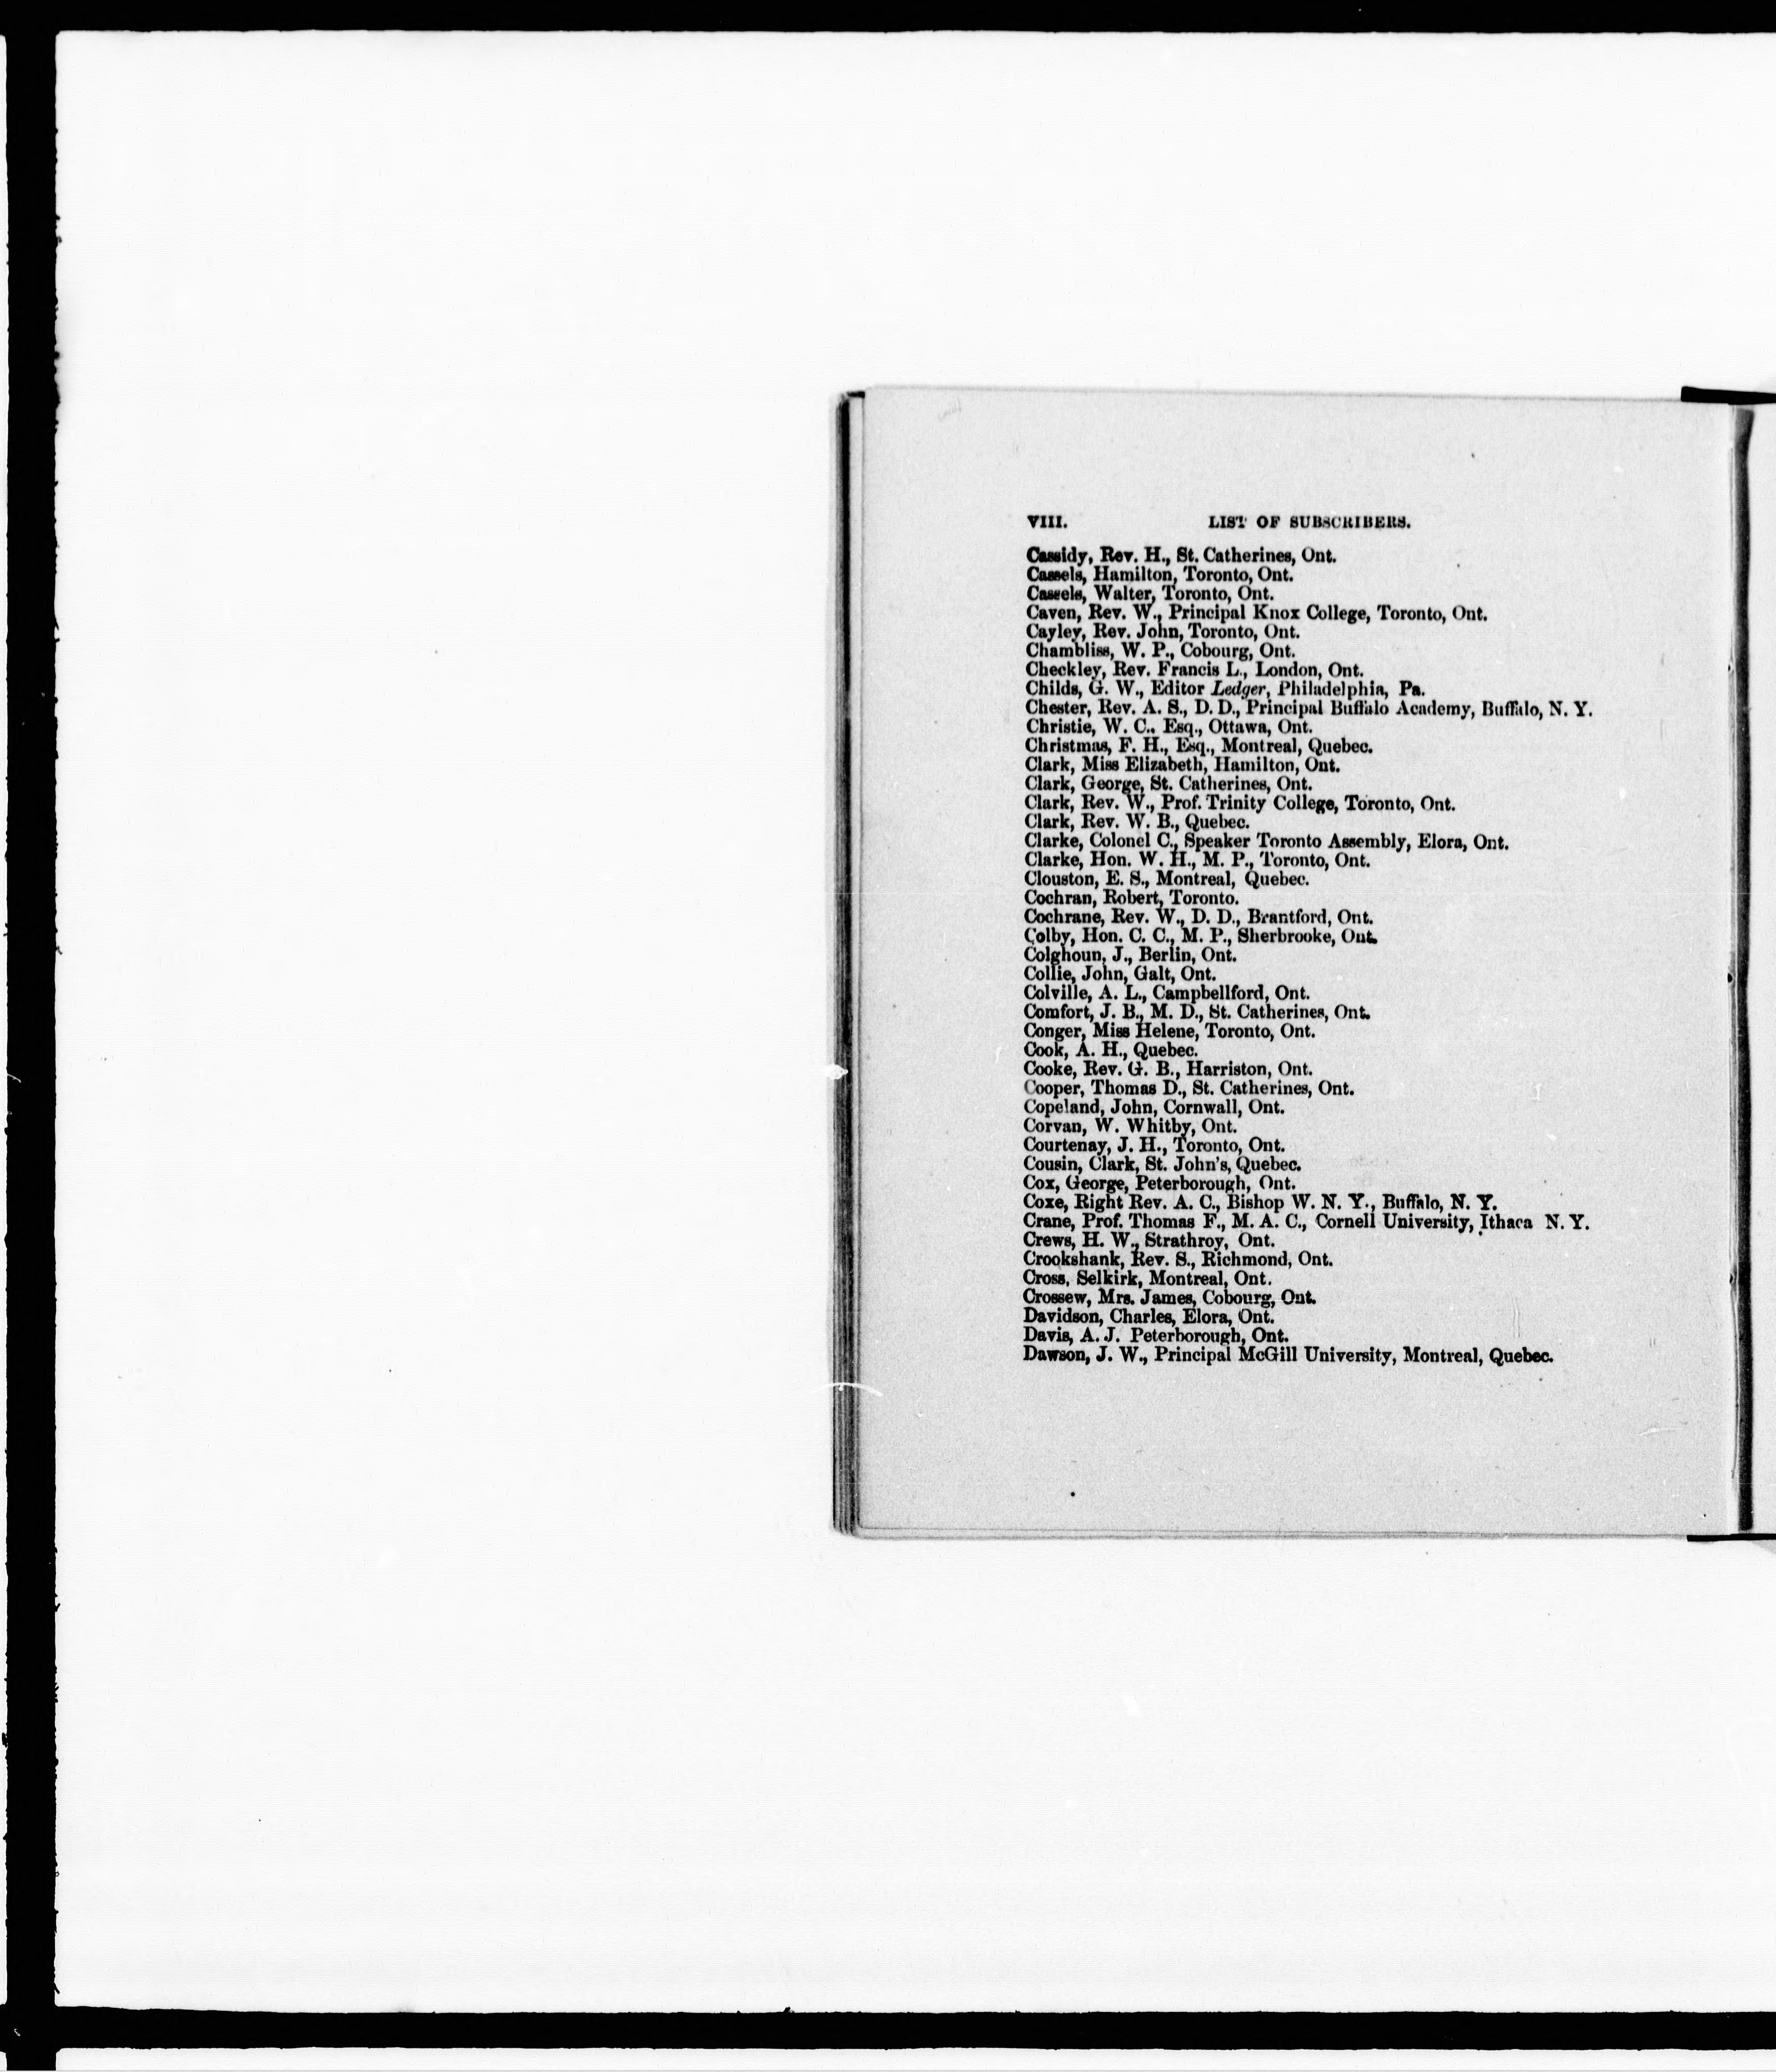 VIII. LIST OF SUBSCRIBERS.
Cassidy, Rev. H., St. Catherines, Ont.
Cassels, Hamilton, Toronto, Ont.
Cassels, Walter, Toronto, Ont.
Caven, Rev. W., Principal Knox College, Toronto, Ont.
Cayley, Rev. John, Toronto, Ont.
Chambliss, W. P., Cobourg, Ont.
Checkley, Rev. Francis L., London, Ont.
Childs, G. W., Editor Ledger, Philadelphia, Pa.
Chester, Rev. A. S., D. D., Principal Buffalo Academy, Buffalo, N. Y.
Christie, W. C., Esq., Ottawa, Ont.
Christmas, F. H., Esq., Montreal, Quebec.
Clark, Miss Elizabeth, Hamilton, Ont.
Clark, George, St. Catherines, Ont.
Clark, Rev. W., Prof. Trinity College, Toronto, Ont.
Clark, Rev. W. B., Quebec.
Clarke, Colonel C., Speaker Toronto Assembly, Elora, Ont.
Clarke, Hon. W. H., M. P., Toronto, Ont.
Clouston, E. S., Montreal, Quebec.
Cochran, Robert, Toronto.
Cochrane, Rev. W., D. D., Brantford, Ont.
Colby, Hon. C. C., M. P., Sherbrooke, Ont.
Colghoun, J., Berlin, Ont.
Collie, John, Galt, Ont.
Colville, A. L., Campbellford, Ont.
Comfort, J. B., M. D., St. Catherines, Ont.
Conger, Miss Helene, Toronto, Ont.
Cook, A. H., Quebec.
Cooke, Rev. G. B., Harriston, Ont.
Cooper, Thomas D., St. Catherines, Ont.
Copeland, John, Cornwall, Ont.
Corvan, W. Whitby, Ont.
Courtenay, J. H., Toronto, Ont.
Cousin, Clark, St. John's, Quebec.
Cox, George, Peterborough, Ont.
Coxe, Right Rev. A. C., Bishop W. N. Y., Buffalo, N. Y.
Crane, Prof. Thomas F., M. A. C., Cornell University, Ithaca N. Y.
Crews, H. W., Strathroy, Ont.
Crookshank, Rev. S., Richmond, Ont.
Cross, Selkirk, Montreal, Ont.
Crossew, Mrs. James, Cobourg, Ont.
Davidson, Charles, Elora, Ont.
Davis, A. J. Peterborough, Ont.
Dawson, J. W., Principal McGill University, Montreal, Quebec.